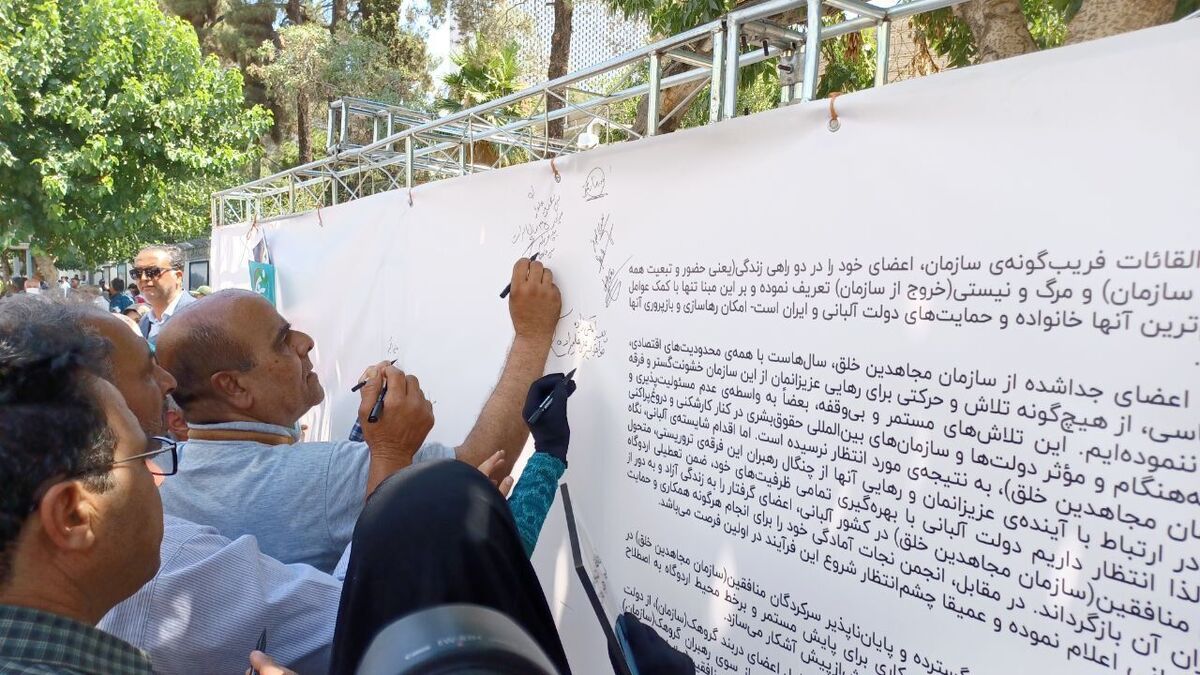 القائات فریب‌گونه‌ی سازمان، اعضای خود را در دو راهی زندگی(یعنی حضور و تبعیت همه
سازمان) و مرگ و نیستی(خروج از سازمان) تعریف نموده و بر این مبنا تنها با کمک عوامل
ترین آنها خانواده و حمایت‌های دولت آلبانی و ایران است- امکان رهاسازی و بازپروری آنها
اعضای جداشده از سازمان مجاهدین خلق، سال‌هاست با همه‌ی محدودیت‌های اقتصادی،
اسی، از هیچ‌گونه تلاش و حرکتی برای رهایی عزیزانمان از این سازمان خشونت‌گستر و فرقه
ننموده‌ایم. این تلاش‌های مستمر و بی‌وقفه، بعضاً به واسطه‌ی عدم مسئولیت‌پذیری و
ه‌هنگام و مؤثر دولت‌ها و سازمان‌های بین‌المللی حقوق‌بشری در کنار کارشکنی و دروغ‌پراکنی
ان مجاهدین خلق)، به نتیجه‌ی مورد انتظار نرسیده است. اما اقدام شایسته‌ی آلبانی، نگاه
در ارتباط با آینده‌ی عزیزانمان و رهایی آنها از چنگال رهبران این فرقه‌ی تروریستی، متحول
لذا انتظار داریم دولت آلبانی با بهره‌گیری تمامی ظرفیت‌های خود، ضمن تعطیلی اردوگاه
منافقین(سازمان مجاهدین خلق) در کشور آلبانی، اعضای گرفتار را به زندگی آزاد و به دور از
ان آن بازگرداند. در مقابل، انجمن نجات آمادگی خود را برای انجام هرگونه همکاری و حمایت
را اعلام نموده و عمیقا چشم‌انتظار شروع این فرآیند در اولین فرصت می‌باشد.
گسترده و پایان‌ناپذیر سرکردگان منافقین(سازمان مجاهدین خلق) در
کاری برای پایش مستمر و برخط محیط اردوگاه به اصطلاح
ش‌ازپیش آشکار می‌سازد.
اعضای دربند گروهک(سازمان)، از دولت
از سوی رهبران گروهک(سازمان)